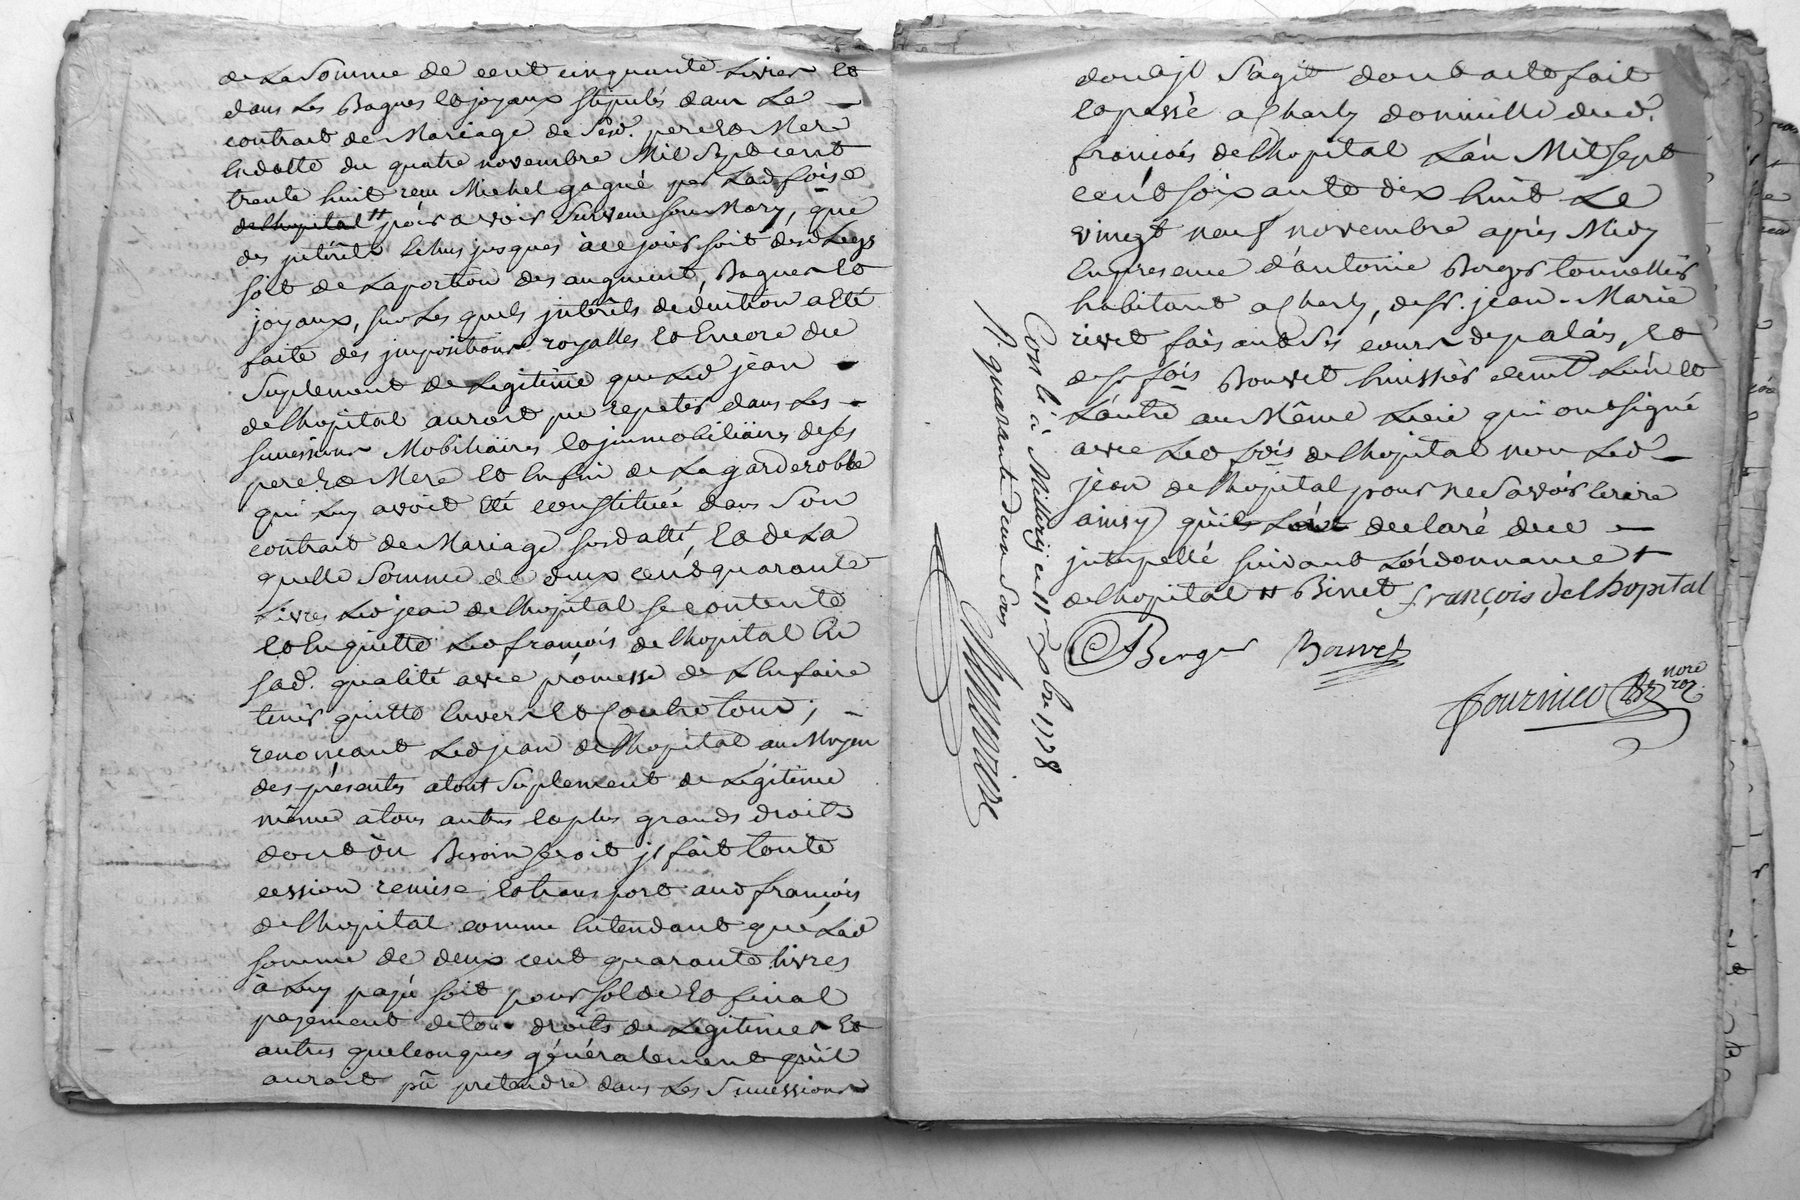 de La Somme de cent cinquante Livres et
dans Les Bagues et joyaux stipulés dans Le —
contrat de Mariage de Sesd. pere et Mere
En datte du quatre novembre Mil Sept cent
trente huit reçu Michel gagné par Lad
delhopital # pour avoir Survecu Son Mary, que
des jntérêts Echus jusques à ce jour soit desd Legs
soit de La portion des augment, Bagues et
joyaux, sur Les quels jntérêts deduction a Eté
faite des jmpositions royalles et Encore du
Suplement de Legitime que Led jean —
delhopital auroit pu repeter dans Les —
successions Mobiliaires et jmmobiliaires de ses
pere et Mere et Enfin de La garderobbe
qui Luy avoit Eté constituée dans Son
contrat de Mariage susdatté, et de La
quelle Somme de deux cent quarante
Livres Led jean delhopital se contente
et En quitte Led françois delhopital En
sad. qualité avec promesse de L'En faire
tenir quitte Envers et Contre tous, —
renonceant Led jean delhopital au Moyen
des presentes a tout Suplement de Légitime
même a tous autres et plus grands droits
dont ou Besoin seroit jl fait toute
cession remise et transport aud françois
delhopital comme Entendant que Lad
somme de deux cent quarante livres
à Luy payé soit pour solde et final
payement de tous droits de Legitimes et
autres quelconques généralement qu'il
auroit pû pretendre dans Les Successions
dont jl S'agit dont acte fait
et passé a Charly domicille dud.
francois delhopital L'an Mil Sept
cent soixante dix huit Le
vingt neuf novembre après Midy
En presence d'antoine Berger tonnellier
habitant a Charly, de sr. jean-Marie
rivet faisant Ses cours de palais, et
de sr fois Bouvet huissier L'un et
L'autre au Même Lieu qui ont signé
avec Led fois delhopital non Led —
jean delhopital pour ne Savoir Ecrire
ainsy qu'il L'a declaré de ce —
jnterpellé suivant L'ordonnance +
delhopital # Binet françois delhopital
Berger Bouvet
nore
roy.
Conlé à Millery ce 11e Xbre 1778
R. quarante deux Sous